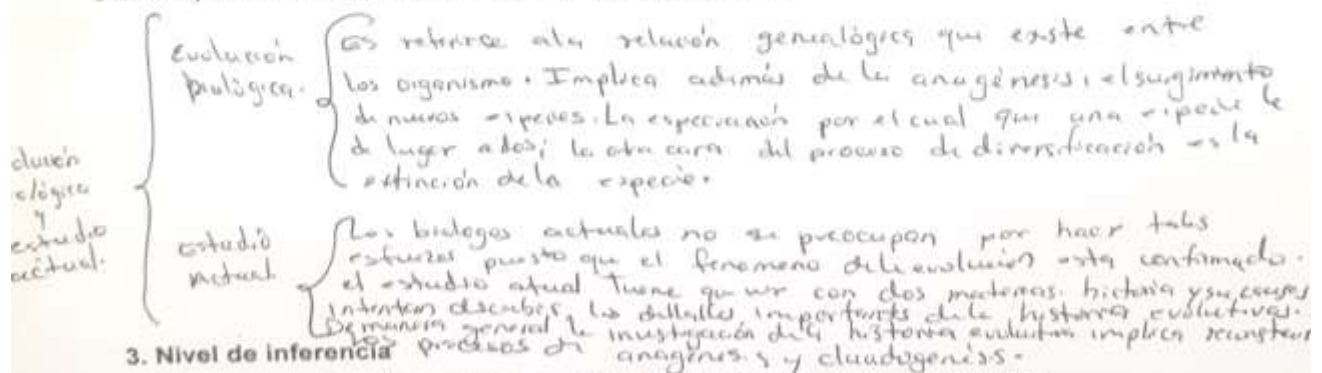 evolución biológica.
es referirse ala relación genealógica que existe entre
los organismo. Implica además de la anagénesis, el surgimiento
de nuevas especies. La especiación por el cual que una especie le
da lugar a dos; la otra cara del proceso de diversificación es la
extinción de la especie.
dución
ológica
y
estudio
actual.
estudio
actual
Los biologos actuales no se preocupan por hacer tales
esfuerzos puesto que el fenomeno de la evolución esta confirmado.
el estudio atual tiene que ver con dos materias. historia y su causas
intentan descubrir los detalles importants de la historia evolutivas.
De manera general la investigación de la historia evolutiva implica reconstruir
los procesos de anagénesis y claudogeniss.
3. Nivel de inferencia